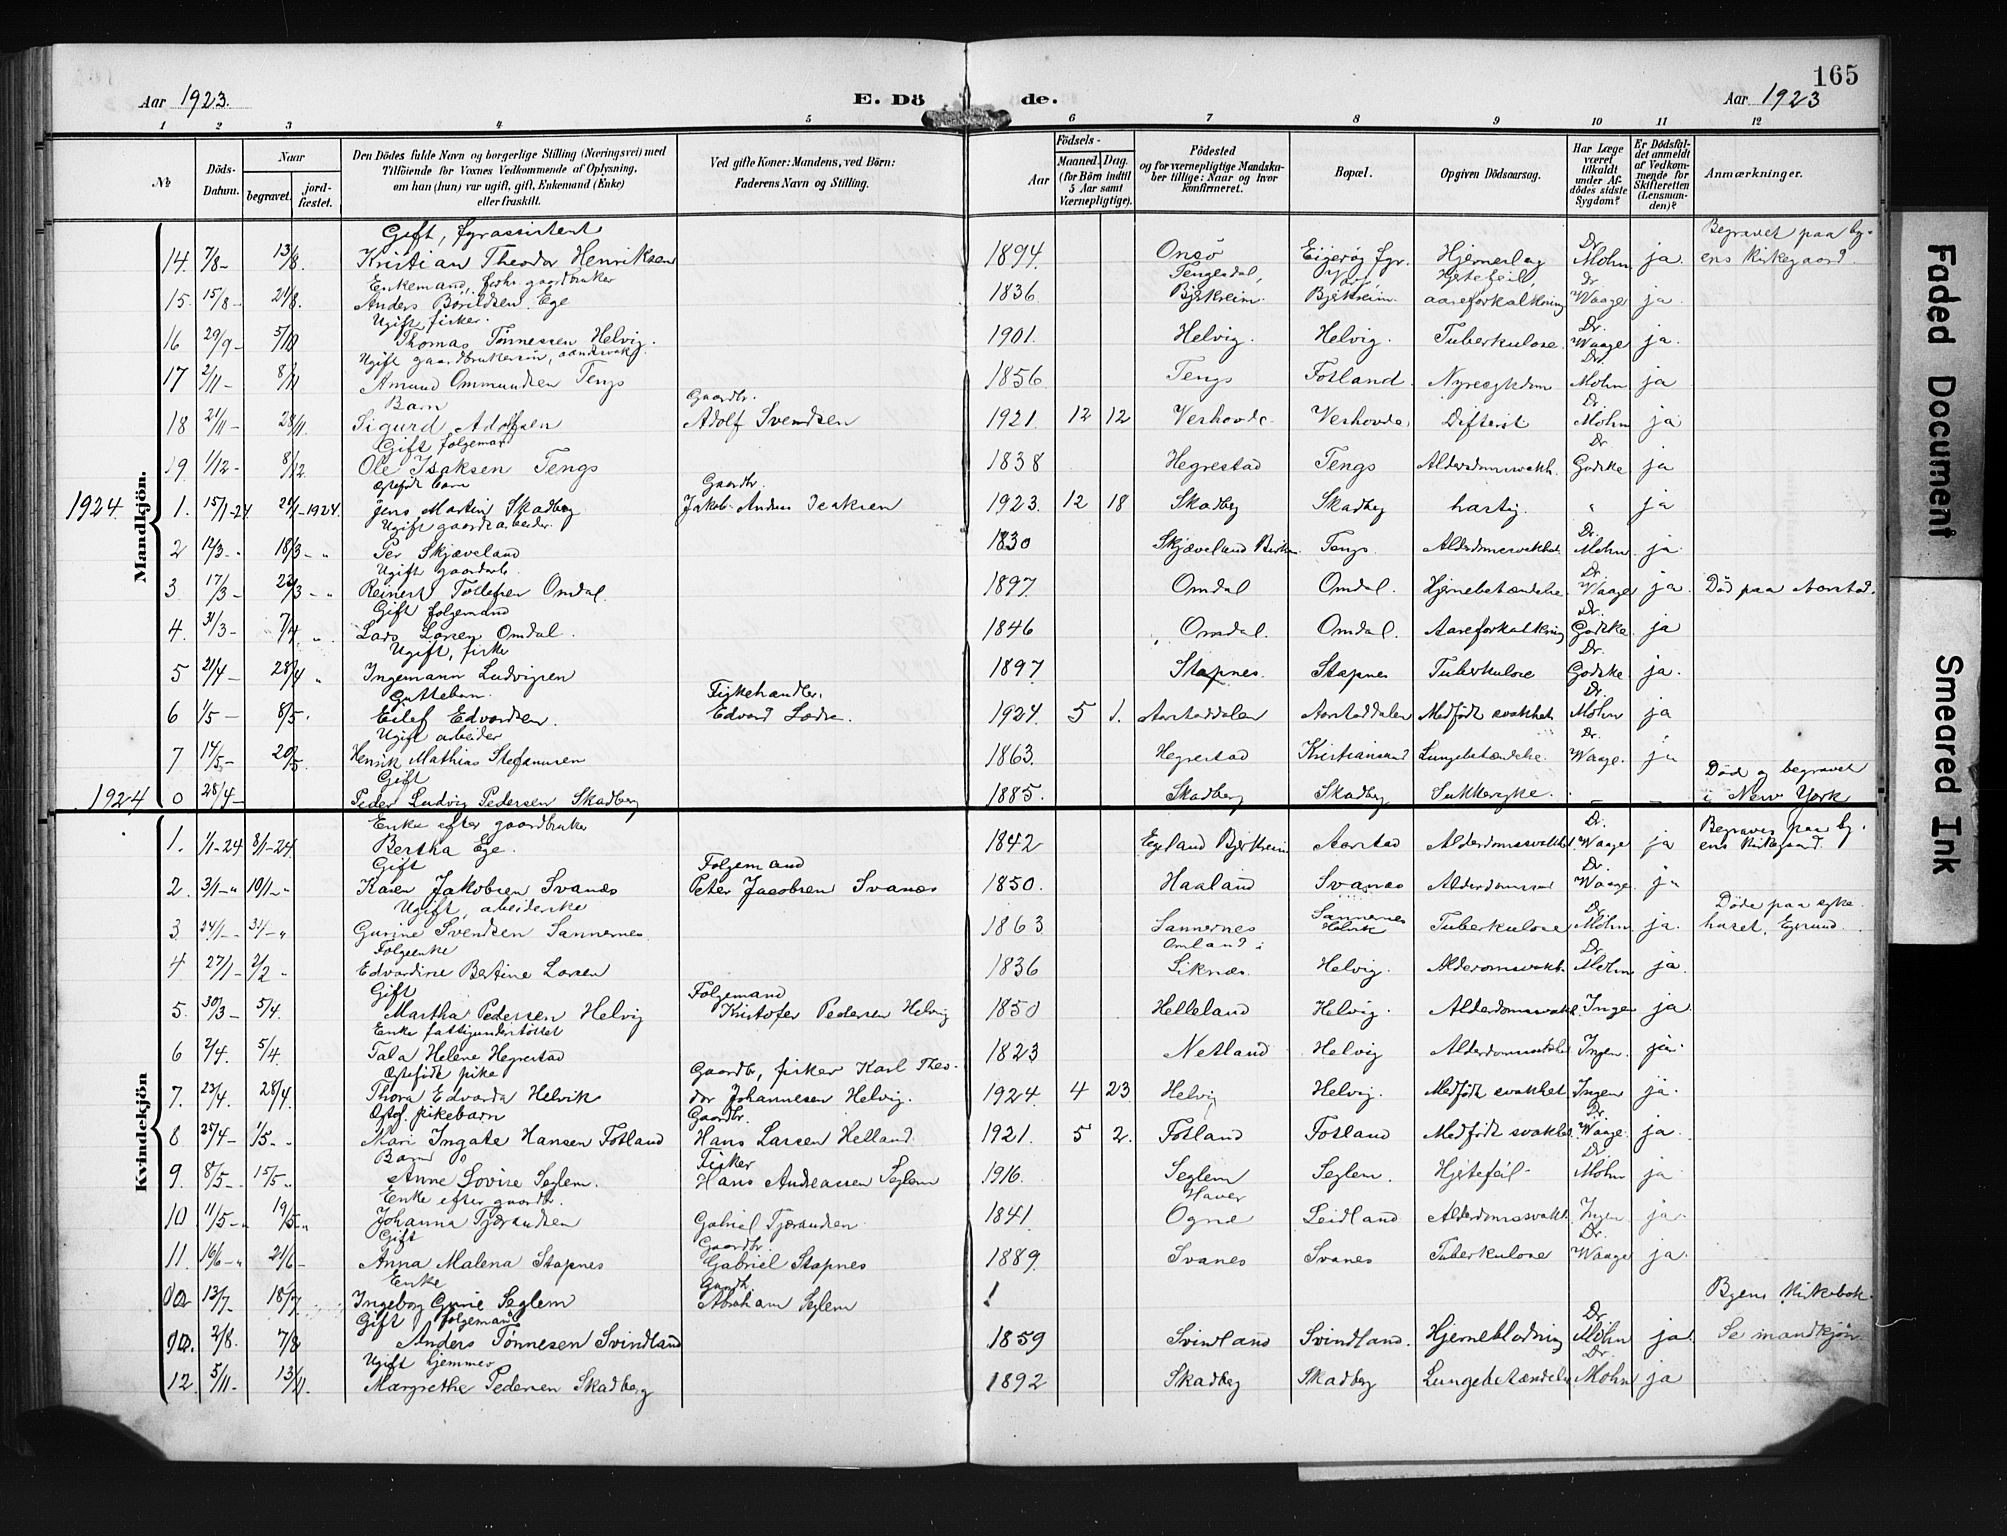 165
Aar 1923. E. Dö de. Aar 1923
1 2 3 4 5 6 7 8 9 10 11 12
№ Döds-Datum. Naar begravet. jordfæstet. Den Dödes fulde Navn og borgerlige Stilling (Næringsvei) med Tilföiende for Voxnes Vedkommende af Oplysning, om han (hun) var ugift, gift, Enkemand (Enke) eller fraskilt. Ved gifte Koner: Mandens, ved Börn: Faderens Navn og Stilling. Födsels- Aar Maaned. Dag. (for Börn indtil 5 Aar samt Værnepligtige). Födested og for værnepligtige Mandskaber tillige: Naar og hvor konfirmeret. Bopæl. Opgiven Dödsaarsag. Har Læge været tilkaldt under Afdödes sidste Sygdom? Er Dödsfaldet anmeldt af Vedkommende for Skifteretten (Lensmanden)? Anmærkninger.
Mandkjön.
Gift, fyrassistent Dr. Begravet paa by-
14. 7/8- 13/8. Kristian Theodor Henriksen 1894. Onsö Eigerøy fyr. Hjerneslag Mohn ja ens Kirkegaard.
Enkemand, forhv. gaardbruker Tengesdal, Hjertefeil, Dr
15. 15/8- 21/8. Anders Bårildsen Ege 1836. Bjerkreim. Bjerkreim. aareforkalkning Waage ja
Ugift, fisker. Dr.
16 29/9- 5/10 Thomas Tønnessen Helvig. 1901. Helvig. Helvig. Tuberkulose. Waage ja.
Ugift gaardbrukersøn, aandssvak. Dr.
17 2/11- 8/11 Amund Ommundsen Tengs 1856. Tengs Fotland. Nyresygdom Mohn ja
Barn Gaardbr. Dr.
18 21/11- 28/11. Sigurd Adolfsen Adolf Svendsen 1921. 12 12 Veshovde. Veshovde. Difterit Mohn ja
Gift folgeman Dr.
19 1/12- 8/12 Ole Isaksen Tengs 1838 Hegrestad Tengs Alderdomssvakh. Godske ja
Ægtefødt barn Gaardbr.
1924. 1. 15/1-24. 21/1-1924. Jens Martin Skadberg Jakob Andreas Isaksen 1923. 12 18 Skadberg Skadberg hastig. " ja
Ugift gaardsarbeider. Dr.
2 12/3- " 18/3- " Per Skjæveland 1830 Skjæveland Tengs. Alderdomssvakhet. Mohn ja.
Ugift gaardarb. Dr.
3 17/3- 22/3- " Reinert Tollefsen Omdal. 1897. Omdal Omdal. Hjernebetændelse Waage ja. Död paa Aarstad.
Gift folgemand Dr.
4. 31/3- 7/4 " Lars Larsen Omdal. 1846 Omdal. Omdal. Aareforkalkning Godske ja
Ugift, fisker Dr.
5 21/4- 28/4 " Ingemann Ludvigsen 1897 Stapnes. Stapnes Tuberkulose Godske ja.
Guttebarn. Fiskehandler. Dr.
6 1/5- 8/5. Eilef Edvardsen. Edvard Lodse. 1924. 5 1. Aarstaddalen Aarstaddalen Medfødt svakhet Mohn ja
Ugift arbeider Dr.
7 14/5- 20/5. Henrik Mathias Stefanusen 1863. Hegrestad Kristiansand Lungebetændelse. Waage. ja
Gift Död og begravet
1924 0 28/4- Peder Ludvig Pedersen Skadberg 1885. Skadberg Skadberg Sukkersyke. - - i New York
Kvindekjön
Enke efter gaardbruker Dr. Begraves paa by-
1. 1/1-24 8/1-24. Bertha Ege. 1842 Egeland Bjerkreim Aarstad Alderdomssvakhet. Waage ja ens Kirkegaard.
Gift Folgemand Dr.
2. 3/1-" 10/1-" Karen Jakobsen Svanes Peter Jacobsen Svanes 1850. Haaland Svanes Waage. ja
Ugift, arbeiderske Sannernes Dr. Døde paa syke-
3. 24/1- 31/1- " Gurine Svendsen Sannernes. 1863 Sannernes Helvik Tuberkulose Mohn ja. huset, Egersund.
Folgeenke Omland i Dr.
4 27/1- 2/2 " Edvardine Bertine Larsen 1836 Siknæs. Helvig. Alderdomssvakh. Mohn ja.
Gift Folgemand
5. 30/3- 5/4. Martha Pedersen Helvig Kristofer Pedersen Helvig 1850 Helleland Helvig. Alderdomssvakh. Ingen ja
Enke fattigunderstøttet
6 2/4. 5/4 Tala Helene Hegrestad 1823 Netland Helvig Ingen. ja.
Ægtefødt pike Gaardbr, fisker Karl Theo-
7. 23/4. 28/4. Thora Edvarda Helvik dor Johannesen Helvig. 1924. 4 23 Helvig Helvig. Medfødt svakhet Ingen ja.
Ægtef. pikebarn Gaardbr. Dr.
8 25/4- 1/5- " Mari Ingate Hansen Fotland Hans Larsen Helland 1921. 5 2. Fotland Fotland Medfødt svakhet. Waage. ja.
Barn Fisker Dr.
9. 8/5- 15/5- Anne Lovise Seglem. Hans Andreassen Seglem 1916. Seglem Seglem. Hjertefeil- Mohn ja
Enke efter gaardbr. Haver
10 11/5-" 19/5-" Johanna Tjærandsen Gabriel Tjærandsen 1841. Ogne Leidland Alderdomssvakh. Ingen ja.
Gift Gaardbr. Dr.
11. 16/6-" 21/6- Anna Malena Stapnes Gabriel Stapnes 1889. Svanes Svanes Tuberkulose Waage ja.
Enke Gaardb.
13/7- 18/7 Ingeborg Gurie Seglem Abraham Seglem Byens Kirkebok.
Gift folgemand Dr.
2/8. 7/8 Anders Tønnesen Svindland 1859 Svindland Svindland. Hjerneblødning Mohn ja. Se mandkjøn.
Ugift hjemmev Dr.
12. 5/11- 13/11. Margrethe Pedersen Skadberg 1892 Skadberg Skadberg Lungebetændelse Mohn ja
Faded Document
Smeared Ink